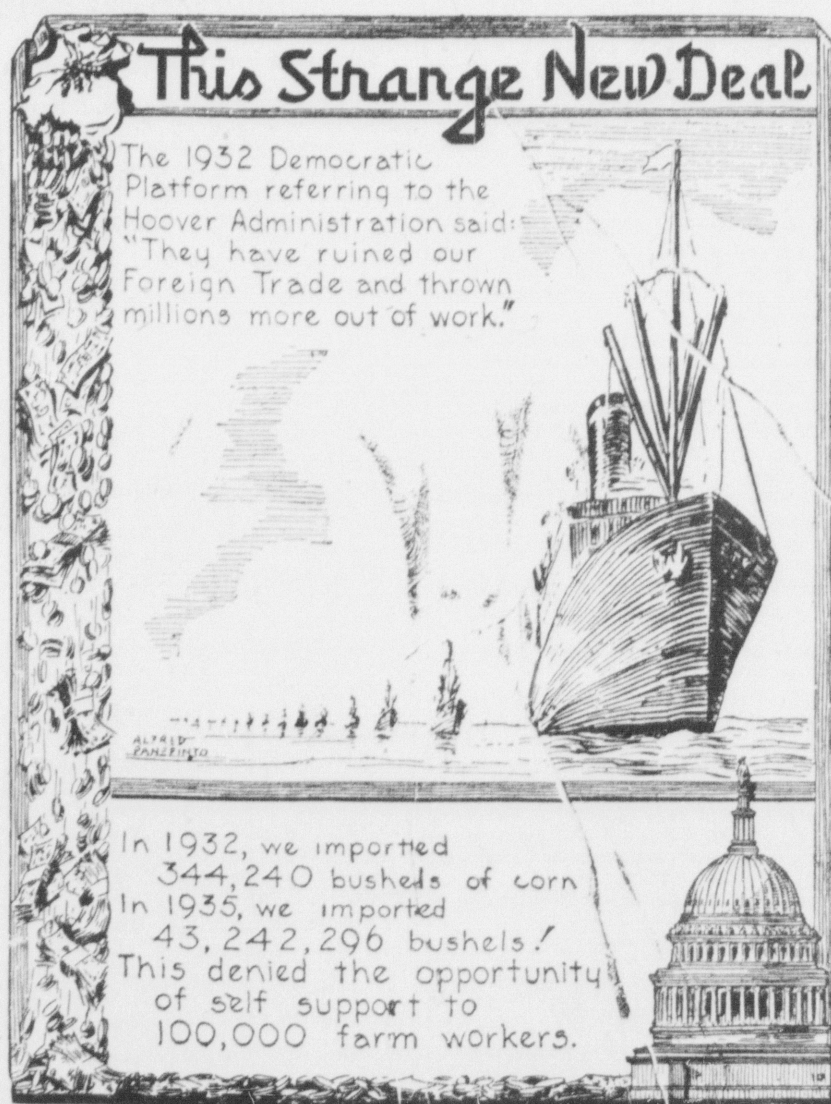 This Strange New Deal
The 1932 Democratic
Platform referring to the
Hoover Administration said:
"They have ruined our
Foreign Trade and thrown
millions more out of work."
ALFRED
PANEPINTO
In 1932, we imported
344,240 bushels of corn
In 1935, we imported
43,242,296 bushels!
This denied the opportunity
of self support to
100,000 farm workers.